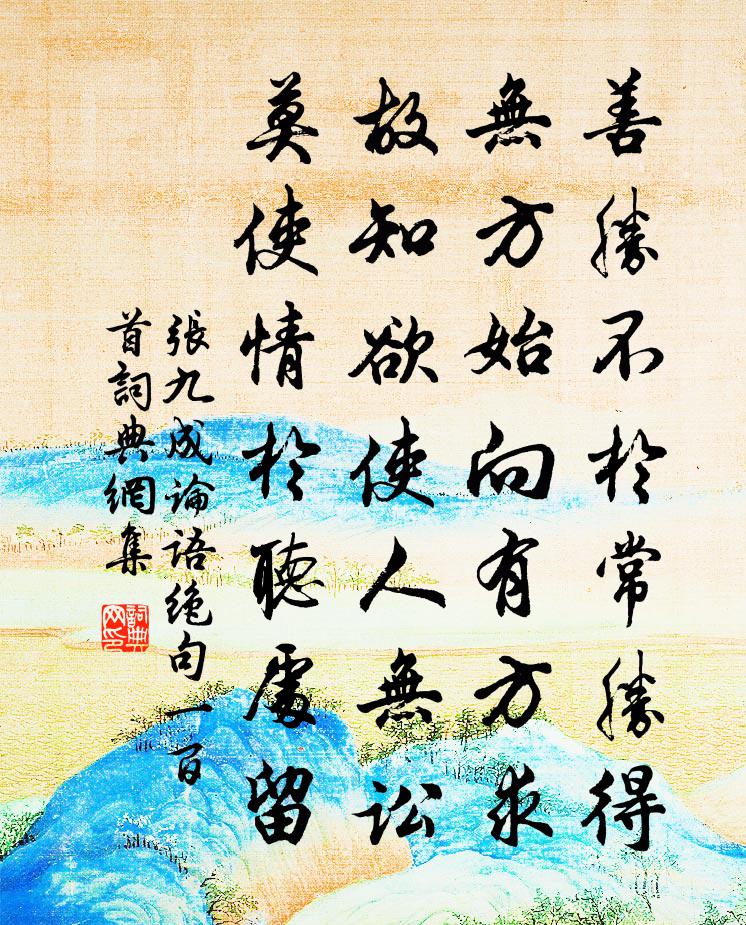 善勝不於常勝得
無方始向有方求
故知欲使人無訟
莫使情於聽處留
張九成論語絶句一百
首詞典網集
詞典网印